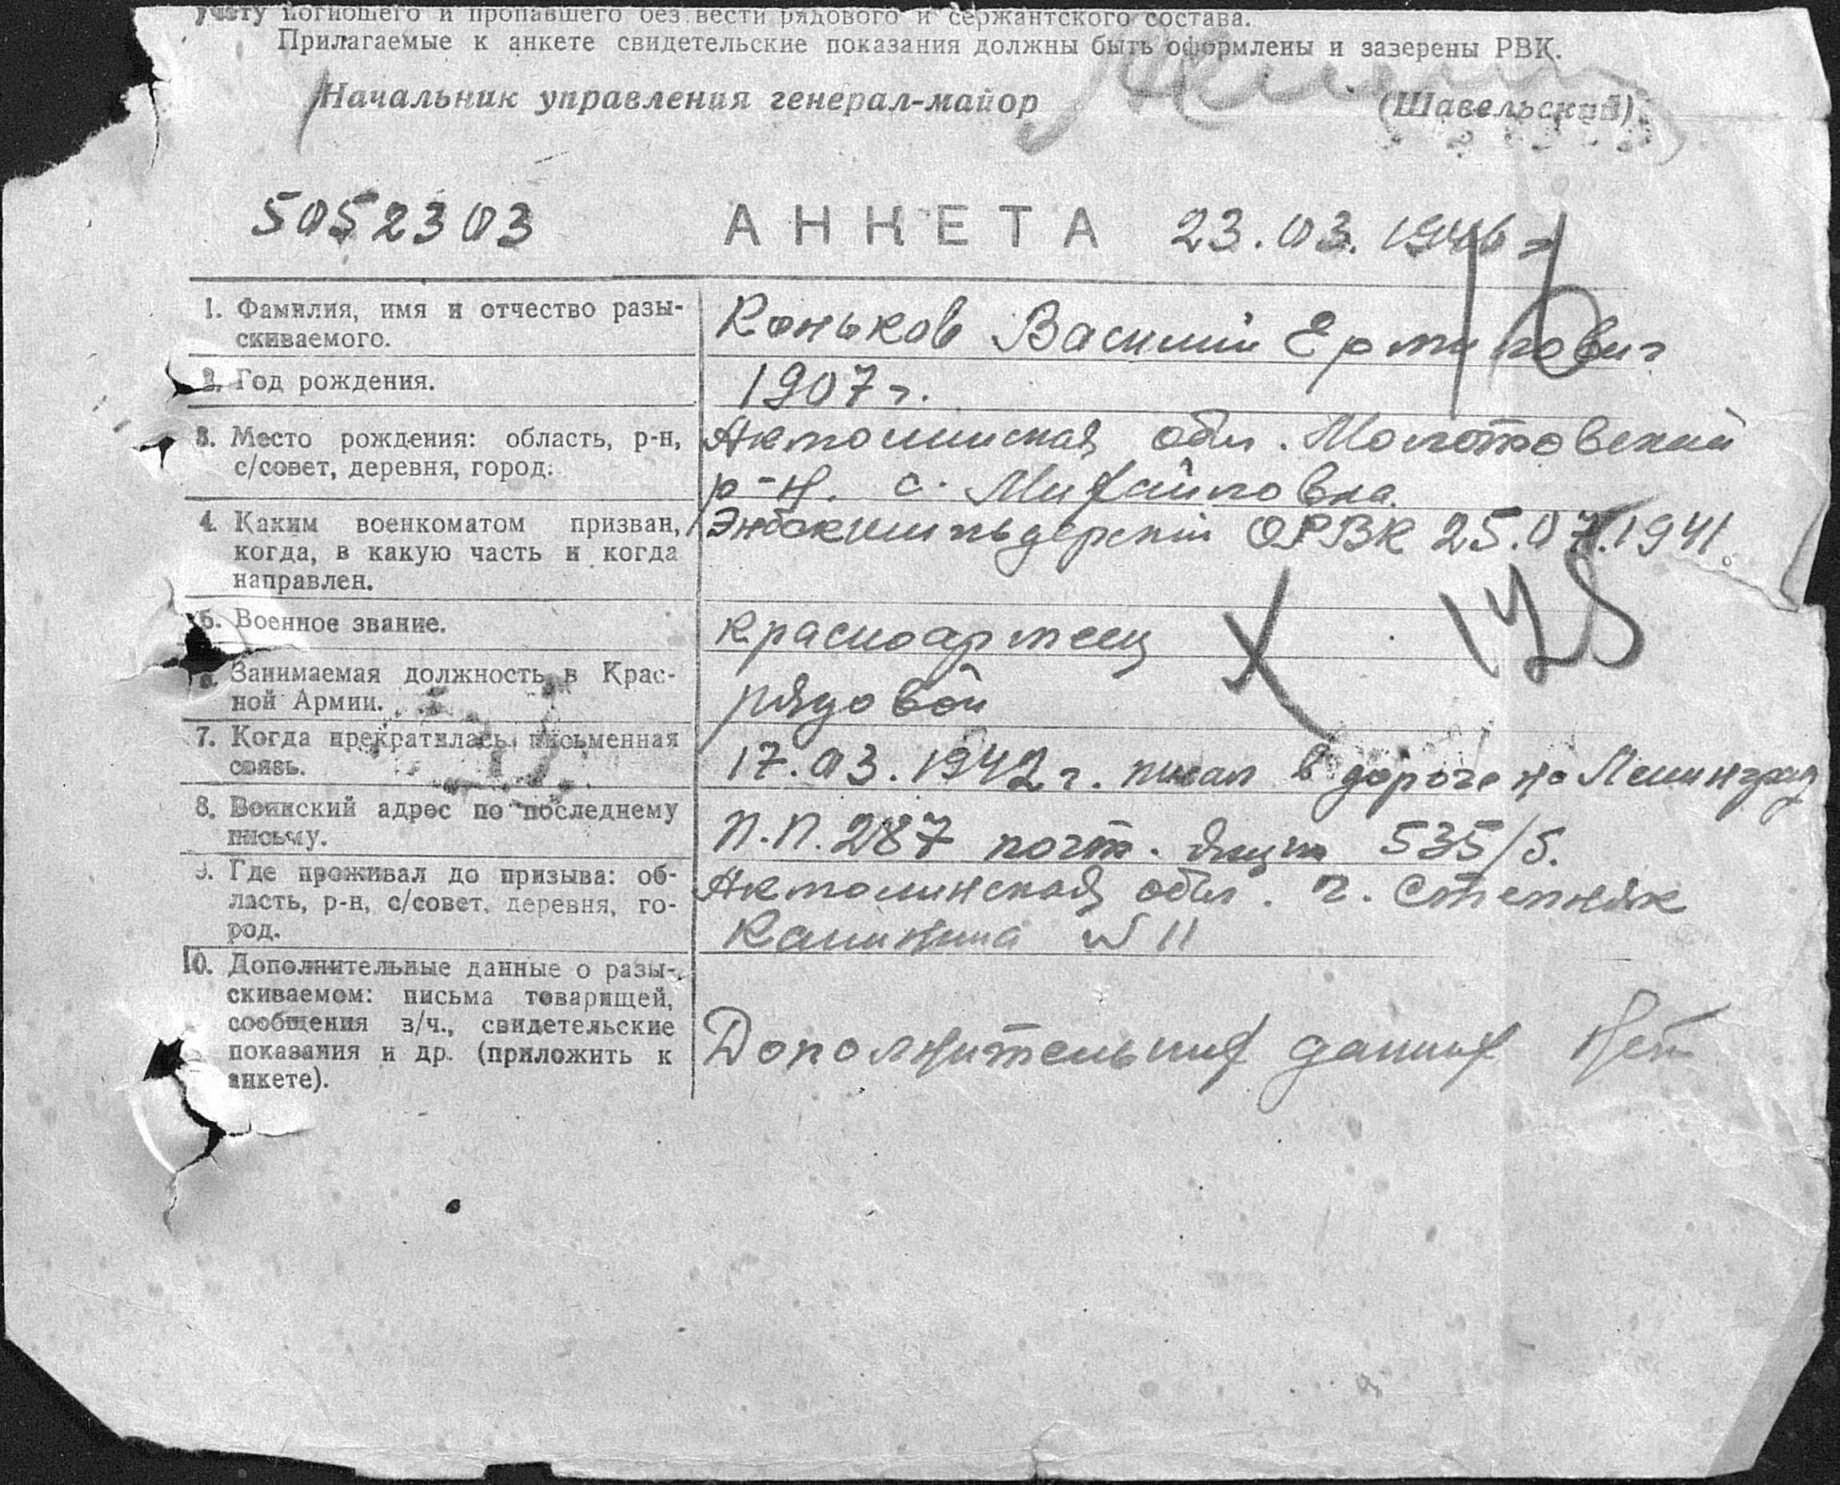 учету погибшего и пропавшего без вести рядового и сержантского состава.
Прилагаемые к анкете свидетельские показания должны быть оформлены и заверены РВК.
Начальник управления генерал-майор (Шавельский)
5052303 АНКЕТА 23.03.1946 г
1. Фамилия, имя и отчество разы-
скиваемого.
Коньков Василий Ермилович
2. Год рождения.
1907 г.
3. Место рождения: область, р-н,
с/совет, деревня, город.
Акмолинская обл. Молотовский
р-н. с. Михайловка.
4. Каким военкоматом призван,
когда, в какую часть и когда
направлен.
Энбекшильдерский ОРВК 25.07.1941
5. Военное звание.
красноармеец
125
6. Занимаемая должность в Крас-
ной Армии.
рядовой
7. Когда прекратилась письменная
связь.
17.03.1942 г. писал в дороге на Ленинград
8. Воинский адрес по последнему
письму.
П.П. 287 почт. ящик 535/5.
9. Где проживал до призыва: об-
ласть, р-н, с/совет, деревня, го-
род.
Акмолинская обл. г. Степняк
Калинина № 11
10. Дополнительные данные о разы-
скиваемом: письма товарищей,
сообщения в/ч., свидетельские
показания и др. (приложить к
анкете).
Дополнительных данных нет